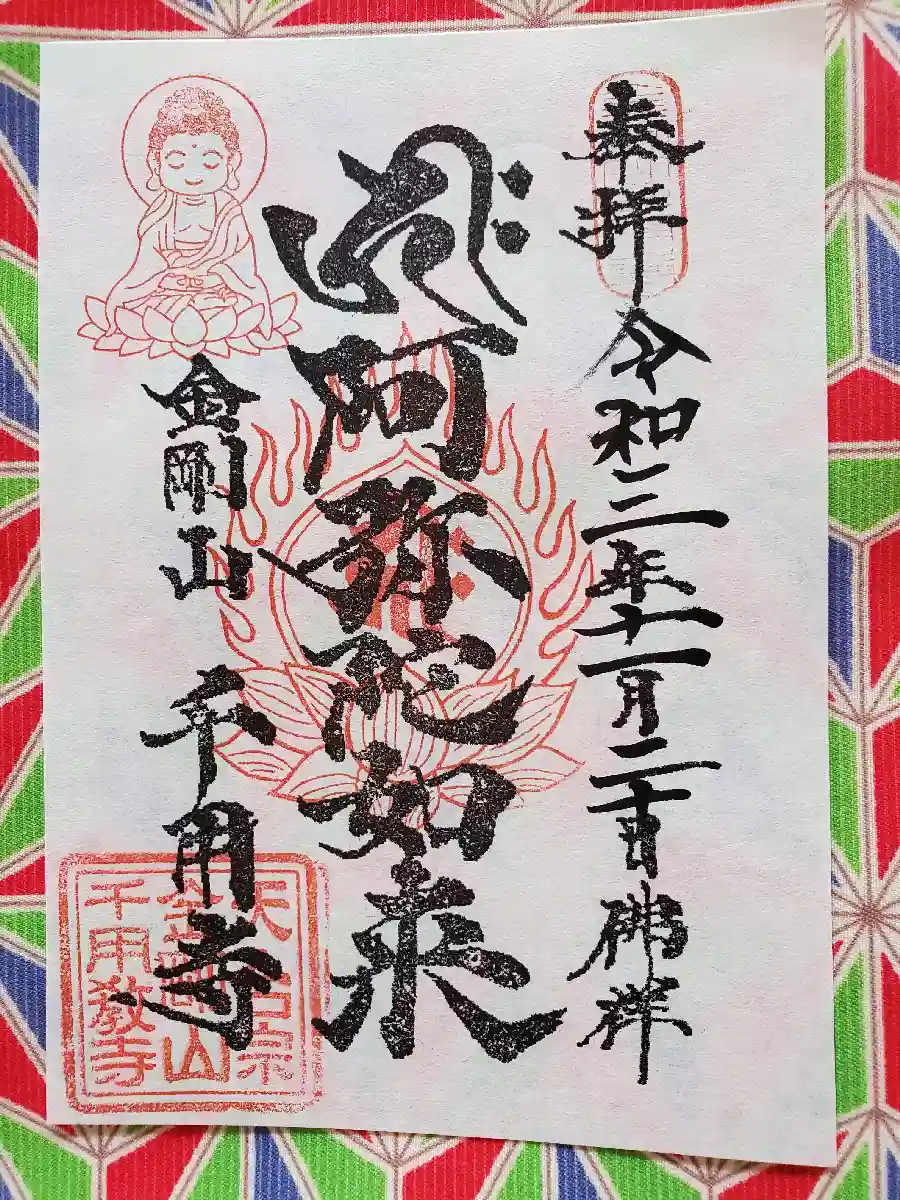 奉拝
令和三年十一月二十日 佛祥
阿弥陀如来
金剛山 千用寺
天台宗
金剛山
千用教寺